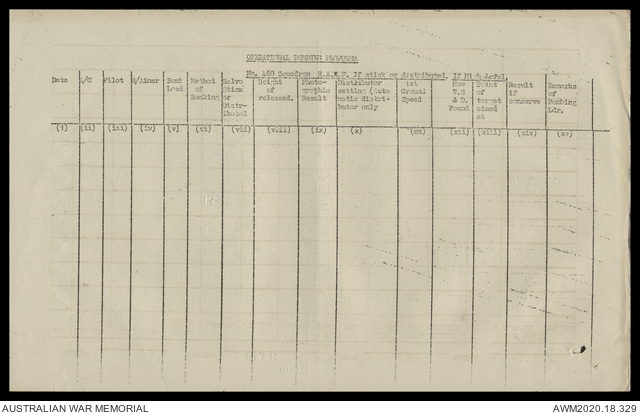 OPERATIONAL BOMBING PROFORMA
No. 460 Squadron R.A.A.F. If stick or distributed. If High Level.
Date A/C Pilot B/Aimer Bomb Load Method of Bombing Salvo Stick or Distributed Height of released. Photographic Result Distributor setting (Automatic distributor only Ground Speed Found Point of target aimed at Result if conserve Remarks of Bombing Ldr.
(i) (ii) (iii) (iv) (v) (vi) (vii) (viii) (ix) (x) (xi) (xii) (xiii) (xiv) (xv)
AUSTRALIAN WAR MEMORIAL
AWM2020.18.329